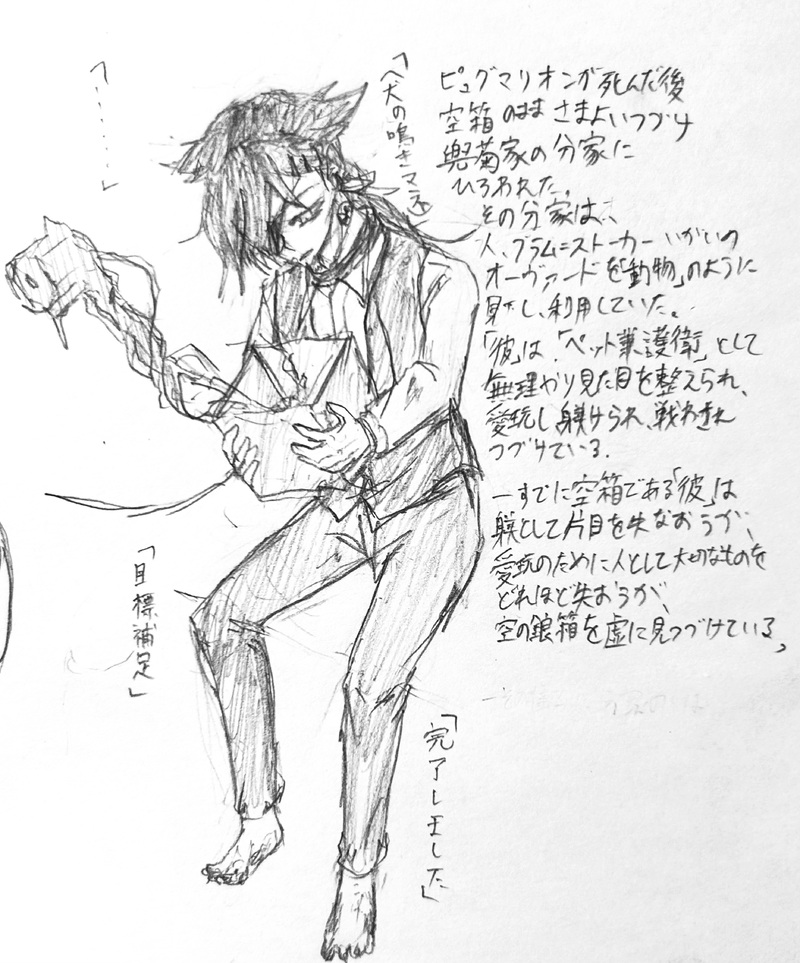 ピュグマリオンが死んだ後
空箱のままさまよいつづけ
菊家の分家に
ひろわれた。
その分家は、
人、ブラム=ストーカーいがいの
オーヴァードを「動物」のように
見下し、利用していた。
「彼」は、「ペット兼護衛」として
無理やり見た目を整えられ、
愛玩し躾けられ、戦わされ
つづけている。
ーすでに空箱である「彼」は
躾として片目を失なおうが、
愛玩のために人として大切なものを
どれほど失おうが、
空の銀箱を虚に見つづけている。
「〈犬の鳴きマネ〉」
「……」
「目標補足」
「完了しました」